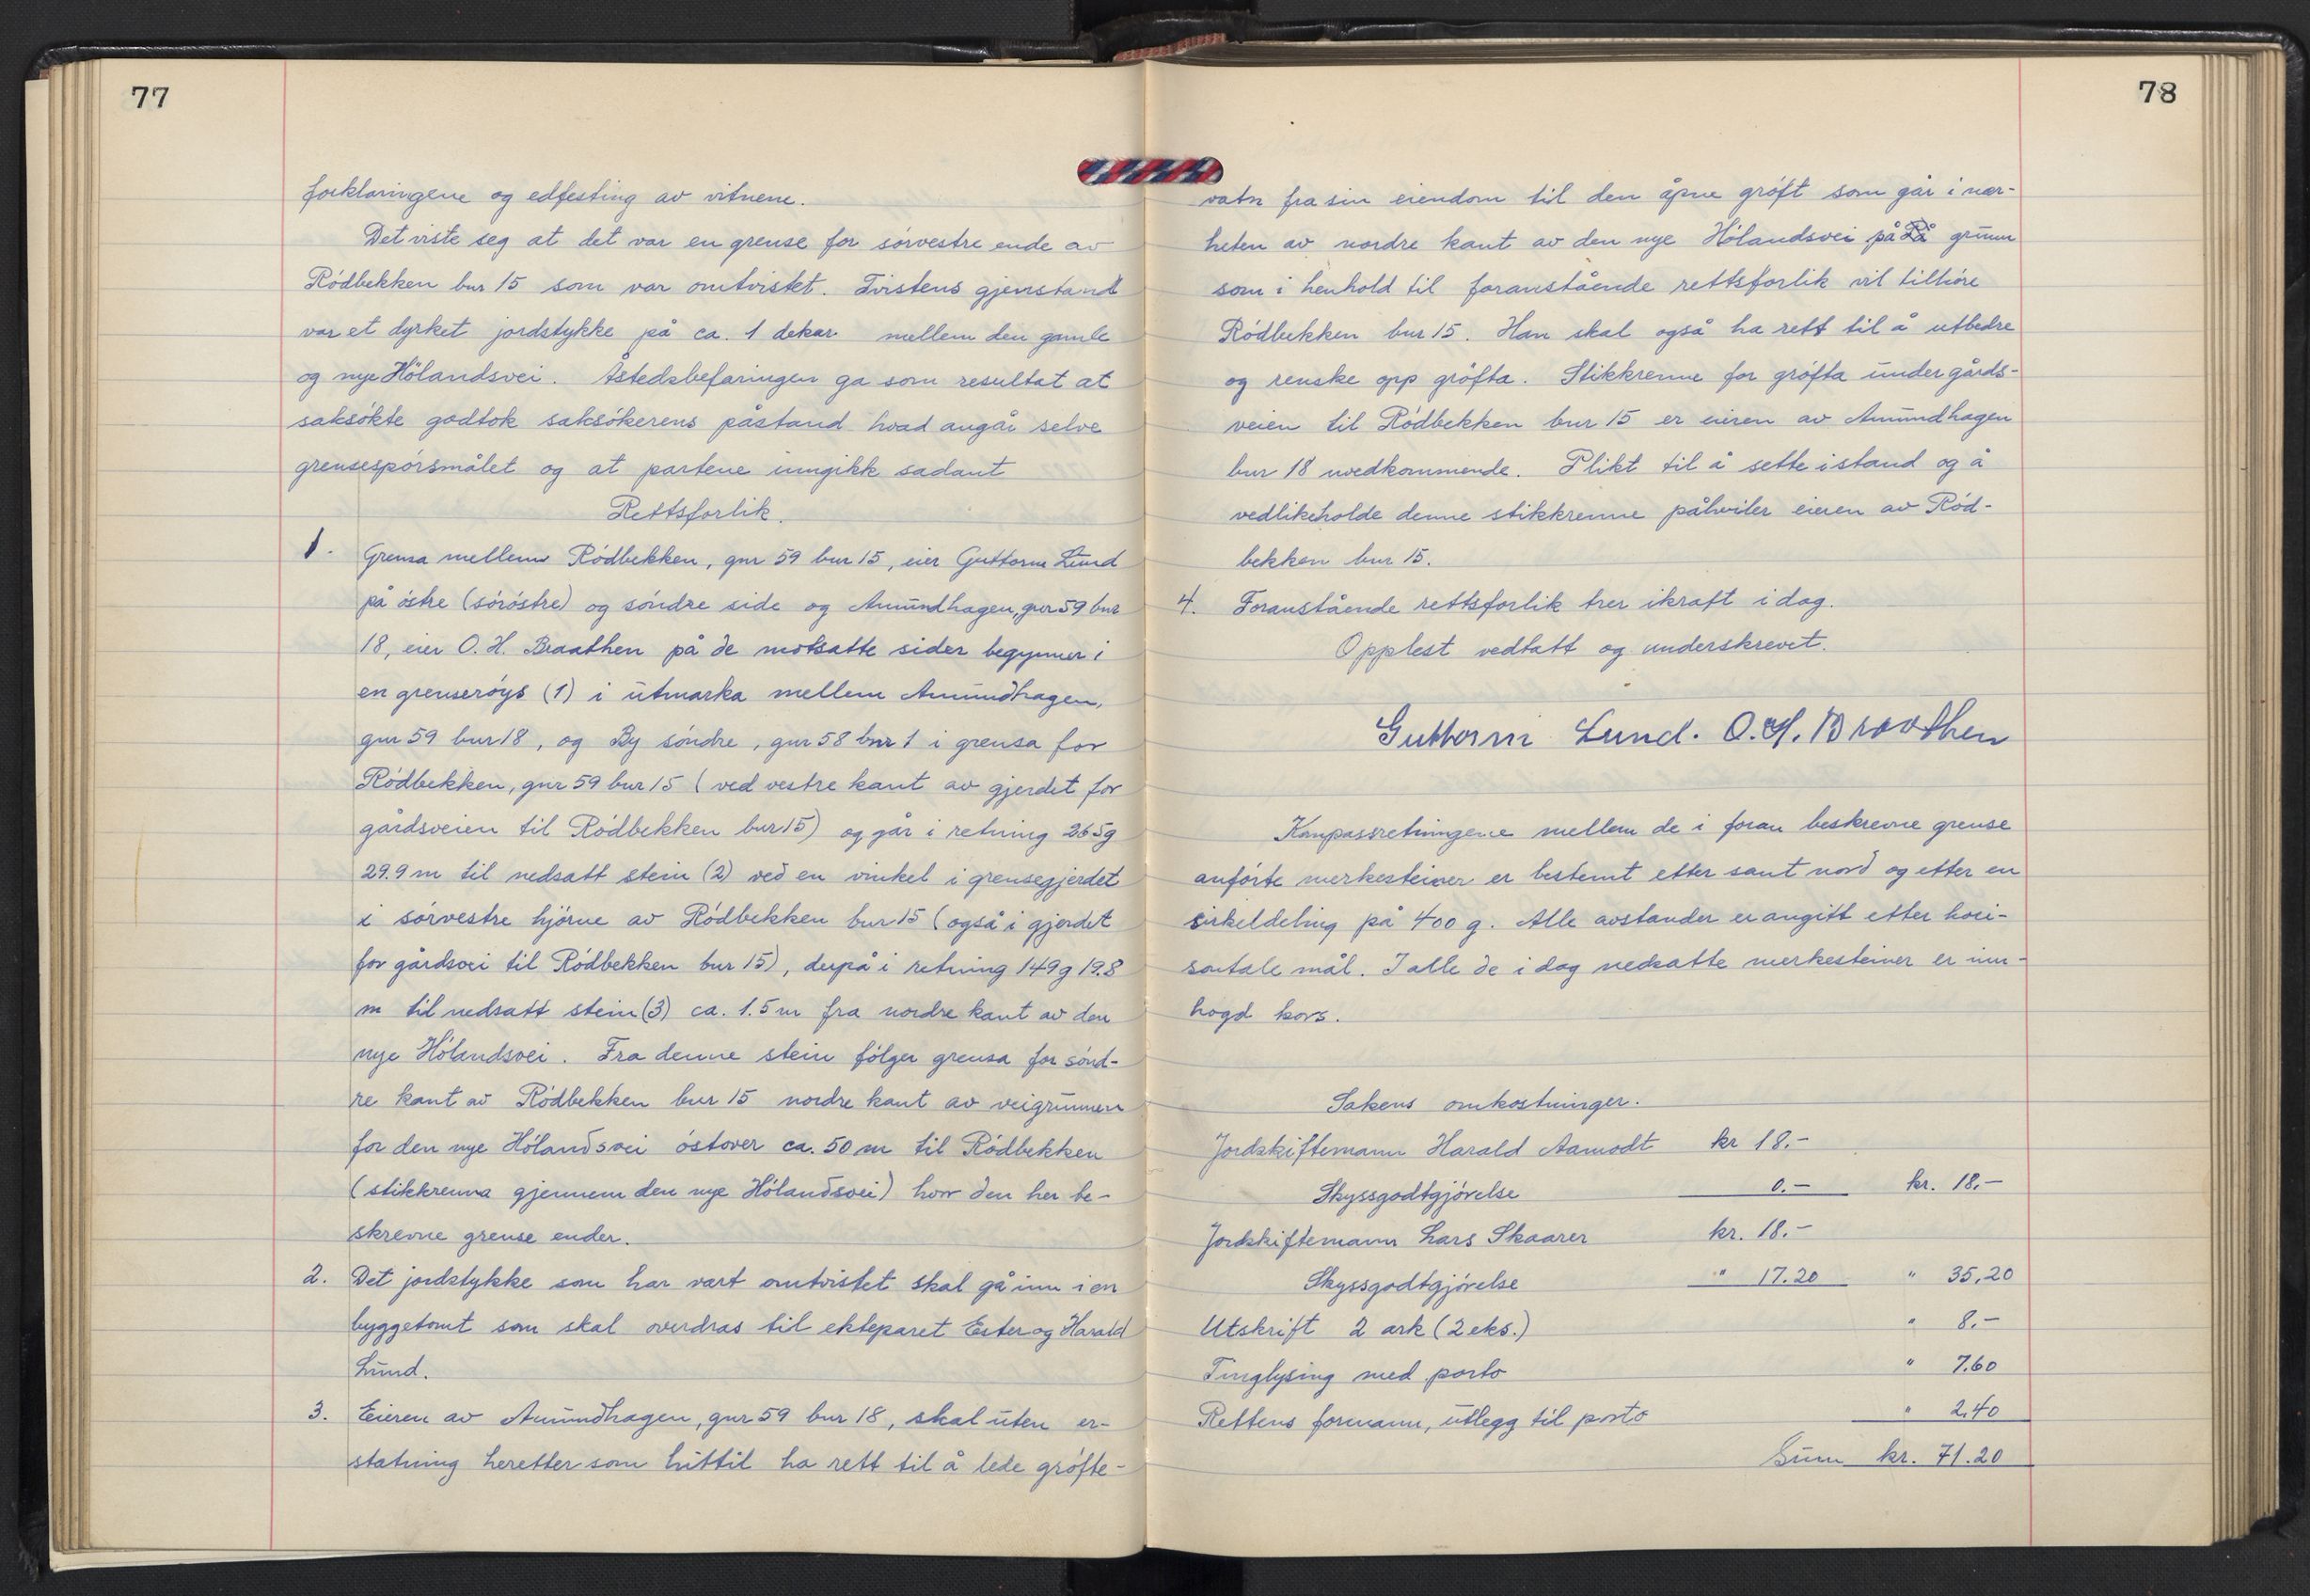 77
forklaringene og edfesting av vitnene.
Det viste seg at det var en grense for sørvestre ende av
Rødbekken bnr 15 som var omtvistet. Tvistens gjenstand
var et dyrket jordstykke på ca. 1 dekar mellem den gamle
og nye Hølandsvei. Åstedsbefaringen ga som resultat at
saksøkte godtok saksøkerens påstand hvad angår selve
grensespørsmålet og at partene inngikk sådant
Rettsforlik.
1. Grensa mellem Rødbekken, gnr 59 bnr 15, eier Guttorm Lund
på østre (sørøstre) og søndre side og Amundhagen, gnr 59 bnr
18, eier O. H. Braathen på de motsatte sider begynner i
en grenserøys (1) i utmarka mellem Amundhagen,
gnr 59 bnr 18, og By søndre, gnr 58 bnr 1 i grensa for
Rødbekken, gnr 59 bnr 15 (ved vestre kant av gjerdet for
gårdsveien til Rødbekken bnr 15) og går i retning 265g
29.9 m til nedsatt stein (2) ved en vinkel i grensegjerdet
i sørvestre hjørne av Rødbekken bnr 15 (også i gjerdet
for gårdsvei til Rødbekken bnr 15), derpå i retning 149g 19.8
m til nedsatt stein (3) ca. 1.5 m fra nordre kant av den
nye Hølandsvei. Fra denne stein følger grensa for sønd-
re kant av Rødbekken bnr 15 nordre kant av veigrunnen
for den nye Hølandsvei østover ca. 50 m til Rødbekken
(stikkrenna gjennem den nye Hølandsvei) hvor den her be-
skrevne grense ender.
2. Det jordstykke som har vært omtvistet skal gå inn i en
byggetomt som skal overdras til ekteparet Ester og Harald
Lund.
3. Eieren av Amundhagen, gnr 59 bnr 18, skal uten er-
statning heretter som hittil ha rett til å lede grøfte-
78
vatn fra sin eiendom til den åpne grøft som går i nær-
heten av nordre kant av den nye Hølandsvei på grunn
som i henhold til foranstående rettsforlik vil tilhøre
Rødbekken bnr 15. Han skal også ha rett til å utbedre
og renske opp grøfta. Stikkrenne for grøfta under gårds-
veien til Rødbekken bnr 15 er eieren av Amundhagen
bnr 18 uvedkommende. Plikt til å sette istand og å
vedlikeholde denne stikkrenne påhviler eieren av Rød-
bekken bnr 15.
4. Foranstående rettsforlik trer ikraft idag.
Opplest vedtatt og underskrevet.
Guttorm Lund. O. H. Braathen
Kompassretningene mellem de i foran beskrevne grense
anførte merkesteiner er bestemt etter sant nord og etter en
sirkeldeling på 400 g. Alle avstander er angitt etter hori-
sontale mål. I alle de idag nedsatte merkesteiner er inn-
hogd kors.
Sakens omkostninger.
Jordskiftemann Harald Aamodt kr 18.-
Skyssgodtgjørelse 0.- kr. 18.-
Jordskiftemann Lars Skaarer kr. 18.-
Skyssgodtgjørelse " 17.20 " 35,20
Utskrift 2 ark (2 eks.) " 8.-
Tinglysing med porto " 7.60
Rettens formann, utlegg til porto " 2.40
Sum kr. 71.20